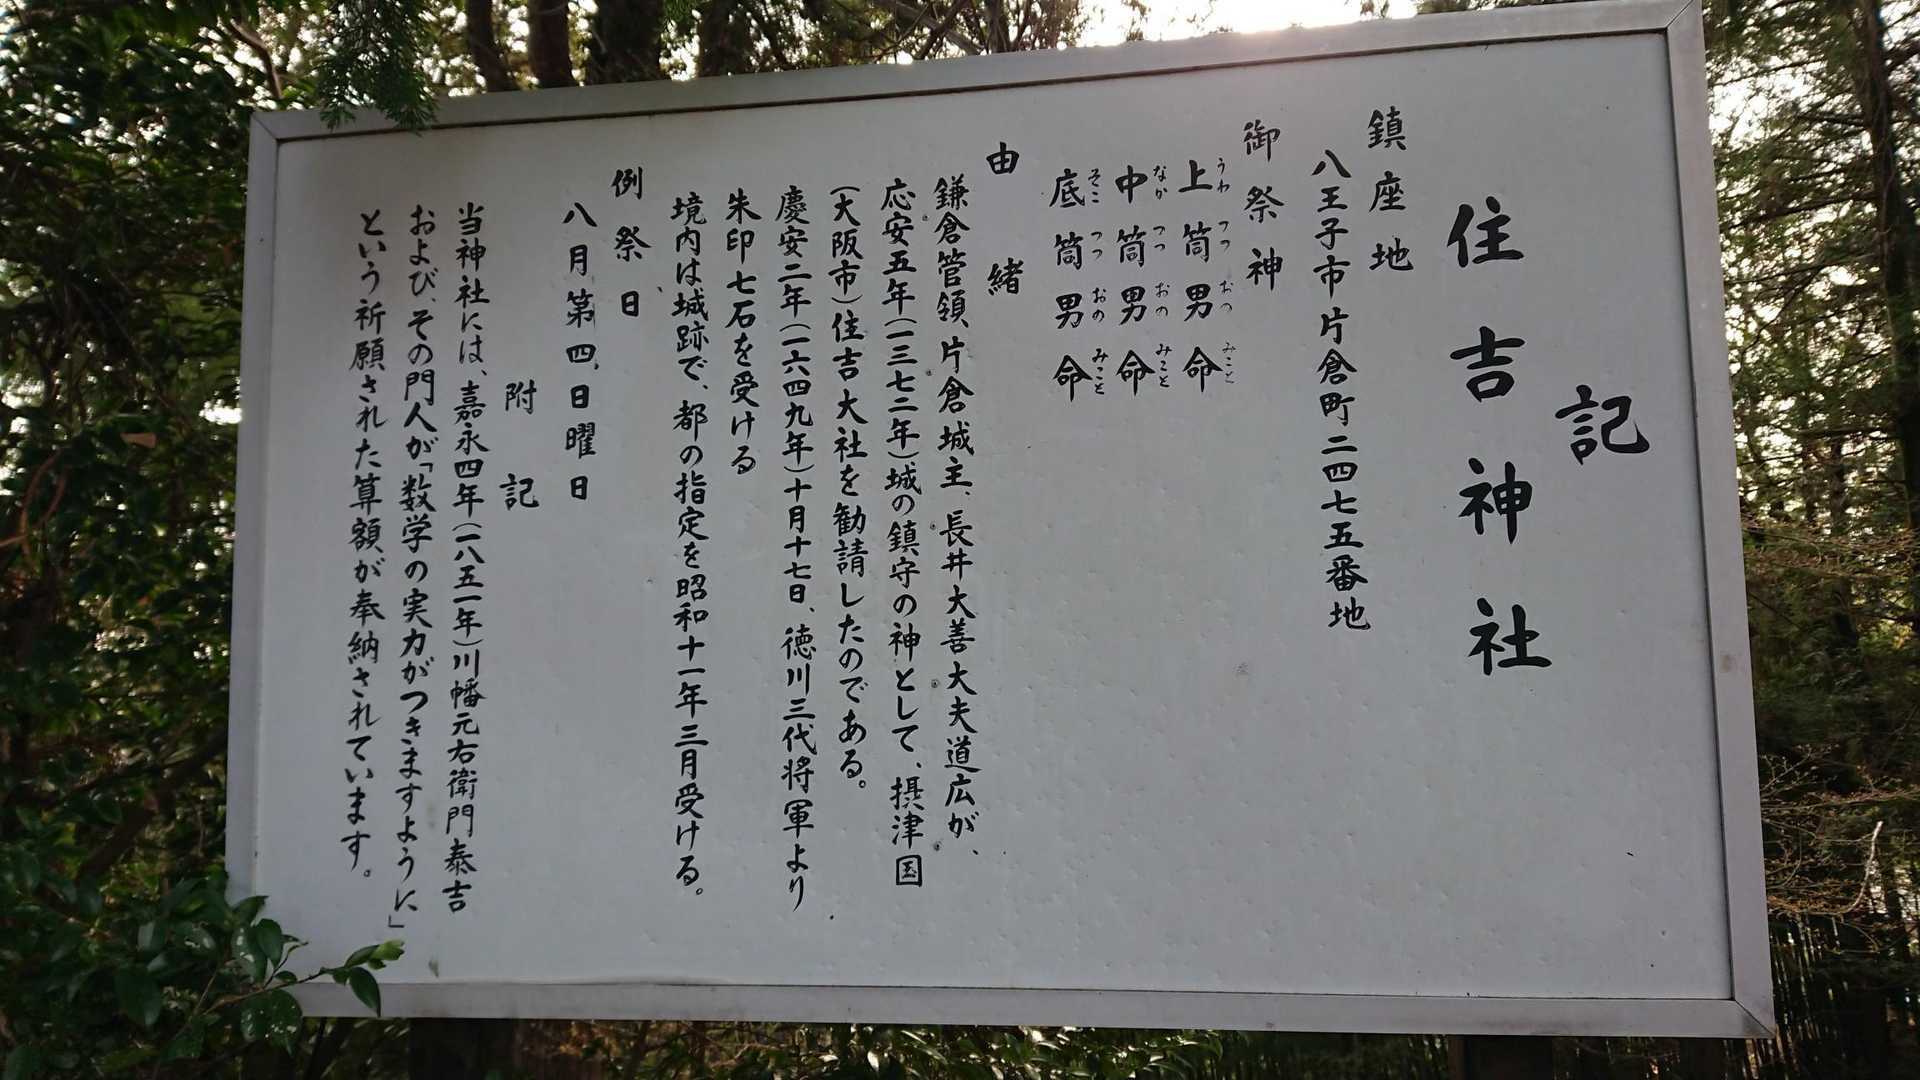 記
住吉神社
鎮座地
八王子市片倉町二四七五番地
御祭神
上筒男命
うわつつおのみこと
中筒男命
なかつつおのみこと
底筒男命
そこつつおのみこと
由緒
鎌倉管領、片倉城主、長井大善大夫道広が、
応安五年(一三七二年)城の鎮守の神として、摂津国
(大阪市)住吉大社を勧請したのである。
慶安二年(一六四九年)十月十七日、徳川三代将軍より
朱印七石を受ける
境内は城跡で、都の指定を昭和十一年三月受ける。
例祭日
八月第四、日曜日
附記
当神社には、嘉永四年(一八五一年)川幡元右衛門泰吉
および、その門人が「数学の実力がつきますように」
という祈願された算額が奉納されています。